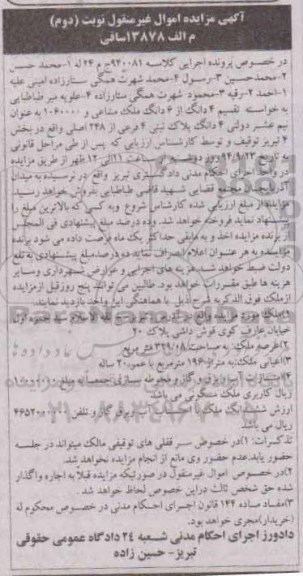 آگهی مزایده اموال غیرمنقول نوبت (دوم)
م الف ۱۳۸۷۸ساقی
در خصوص پرونده اجرایی کلاسه ۹۴۰۰۸۱ج م ۲۴ له ۱-محمد حسن
۲-محمدحسین ۳-رسول ۴-محمد شهرت همگی ستارزاده امینی علیه
۱-احمد ۲-رقیه ۳-محمود شهرت همگی ستارزاده ۴-علویه میر طباطبایی
به خواسته تقسیم ۴ دانگ از ۶ دانگ ملک مشاعی و ۱۰۶۰۰۰۰ به عنوان
نیم عشر دولتی ۴ دانگ پلاک ثبتی ۴ فرعی از ۲۴۸ اصلی واقع در بخش
۴ تبریز توقیف و توسط کارشناس ارزیابی که پس از طی مراحل قانونی
به تاریخ روز ساعت ۱۱الی ۱۲ ظهر از طریق مزایده
در واحد اجرای احکام مدنی دادگستری تبریز واقع در نرسیده به میدان
مجتمع قضایی شهید قاضی طباطبایی بفروش خواهد رسید.
مزایده از مبلغ ارزیابی شده کارشناس شروع و به کسی که بالاترین مبلغ را
پیشنهاد نماید فروخته خواهد شد. ده درصد مبلغ پیشنهادی فی المجلس
از برنده مزایده اخذ و به مابقی حداکثر یک ماه فرصت داده می شود برنده
مزایده به هر عنوان اعلام انصراف نماید ده درصد مبلغ پیشنهادی به نفع
دولت ضبط خواهد شد هزینه های اجرایی و عوارض شهرداری و سایر
هزینه ها طبق مقررات خواهد بود. طالبین می توانند پنج روز قبل از مزایده
از ملک فوق الذکر به شرح ذیل با هماهنگی این واحد بازدید نمایند.
۱-ملک مورد مزایده واقع در
خیابان عارف کوی قوش داشی پلاک ۲۰
۲)عرصه ملک: به مساحت ۳۲۹/۰۸ متر مربع
۳)اعیانی ملک: به متراژ ۱۹۶ مترمربع با عمر ۲۰ ساله
۴)امتیازات آب و برق و گاز و محوطه سازی جمعا به مبلغ
ریال کاربری ملک مسکونی می باشد.
ارزش ششدانگ ملک با احتساب آب و برق و گاز و تلفن
ریال می باشد.
تذکرات: ۱)در خصوص سر قفلی های توقیفی مالک میتواند در جلسه
حضور یابد. عدم حضور وی مانع از انجام مزایده نخواهد شد.
۲)در خصوص اموال غیرمنقول در صورتیکه مزایده قبلا به اجاره واگذار
شده حق شخص ثالث در این خصوص لحاظ خواهد شد.
۳)مفاد ماده ۱۴۴ قانون اجرای احکام مدنی در خصوص محکوم له
(خریدار) مجری خواهد بود.
دادورز اجرای احکام مدنی شعبه ۲۴ دادگاه عمومی حقوقی
تبریز- حسین زاده